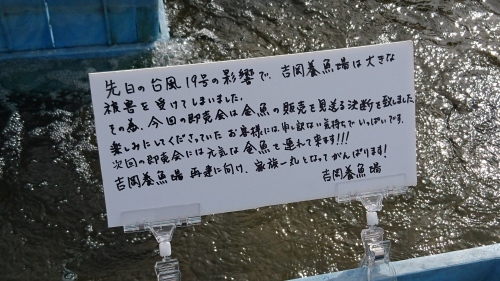 先日の台風19号の影響で、吉岡養魚場は大きな
被害を受けてしまいました。
その為、今回の即売会は金魚の販売を見送る決断を致しました。
楽しみにしてくださっていたお客様には、申し訳ない気持ちでいっぱいです。
次回の即売会には元気な金魚を連れて来ます!!!
吉岡養魚場再建に向け、家族一丸となってがんばります!
吉岡養魚場